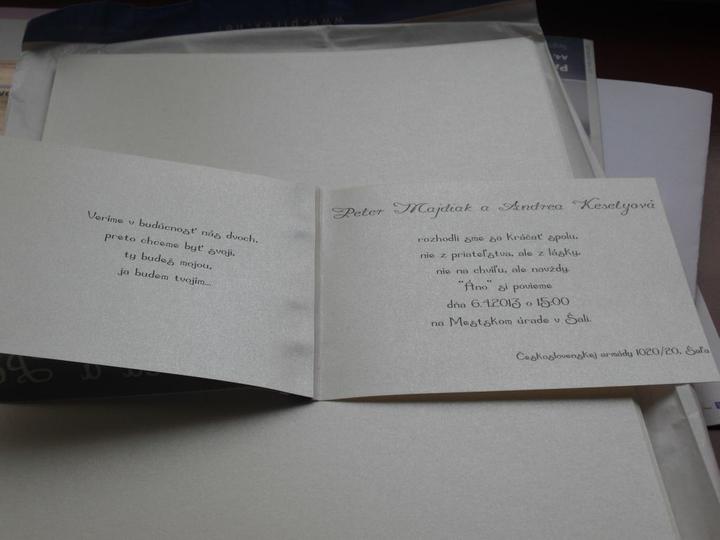 Veríme v budúcnosť nás dvoch,
preto chceme byť svoji,
ty budeš mojou,
ja budem tvojím...
Peter Majdiak a Andrea Keselyová
rozhodli sme sa kráčať spolu,
nie z priateľstva, ale z lásky,
nie na chvíľu, ale navždy.
"Áno" si povieme
dňa 6.4.2013 o 15:00
na Mestskom úrade v Šali.
Československej armády 1020/20, Šaľa